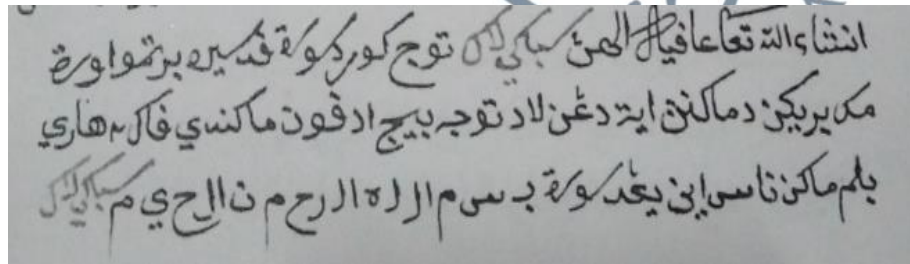 انشاء الله تعالى عافية الهئ سباكي لاك توج كورڠ سورة قد سيره برتمو اورڠ
مك بريكن دماكنن اية دڠن لاد توجه بيج ادفون ماكندي فاك٢ هاري
بلم ماكن ناسي اين يڠد سورة ب س م ا ل ل ه ا ل ر ح م ن ا ل ر ح ي م سباكي لاك